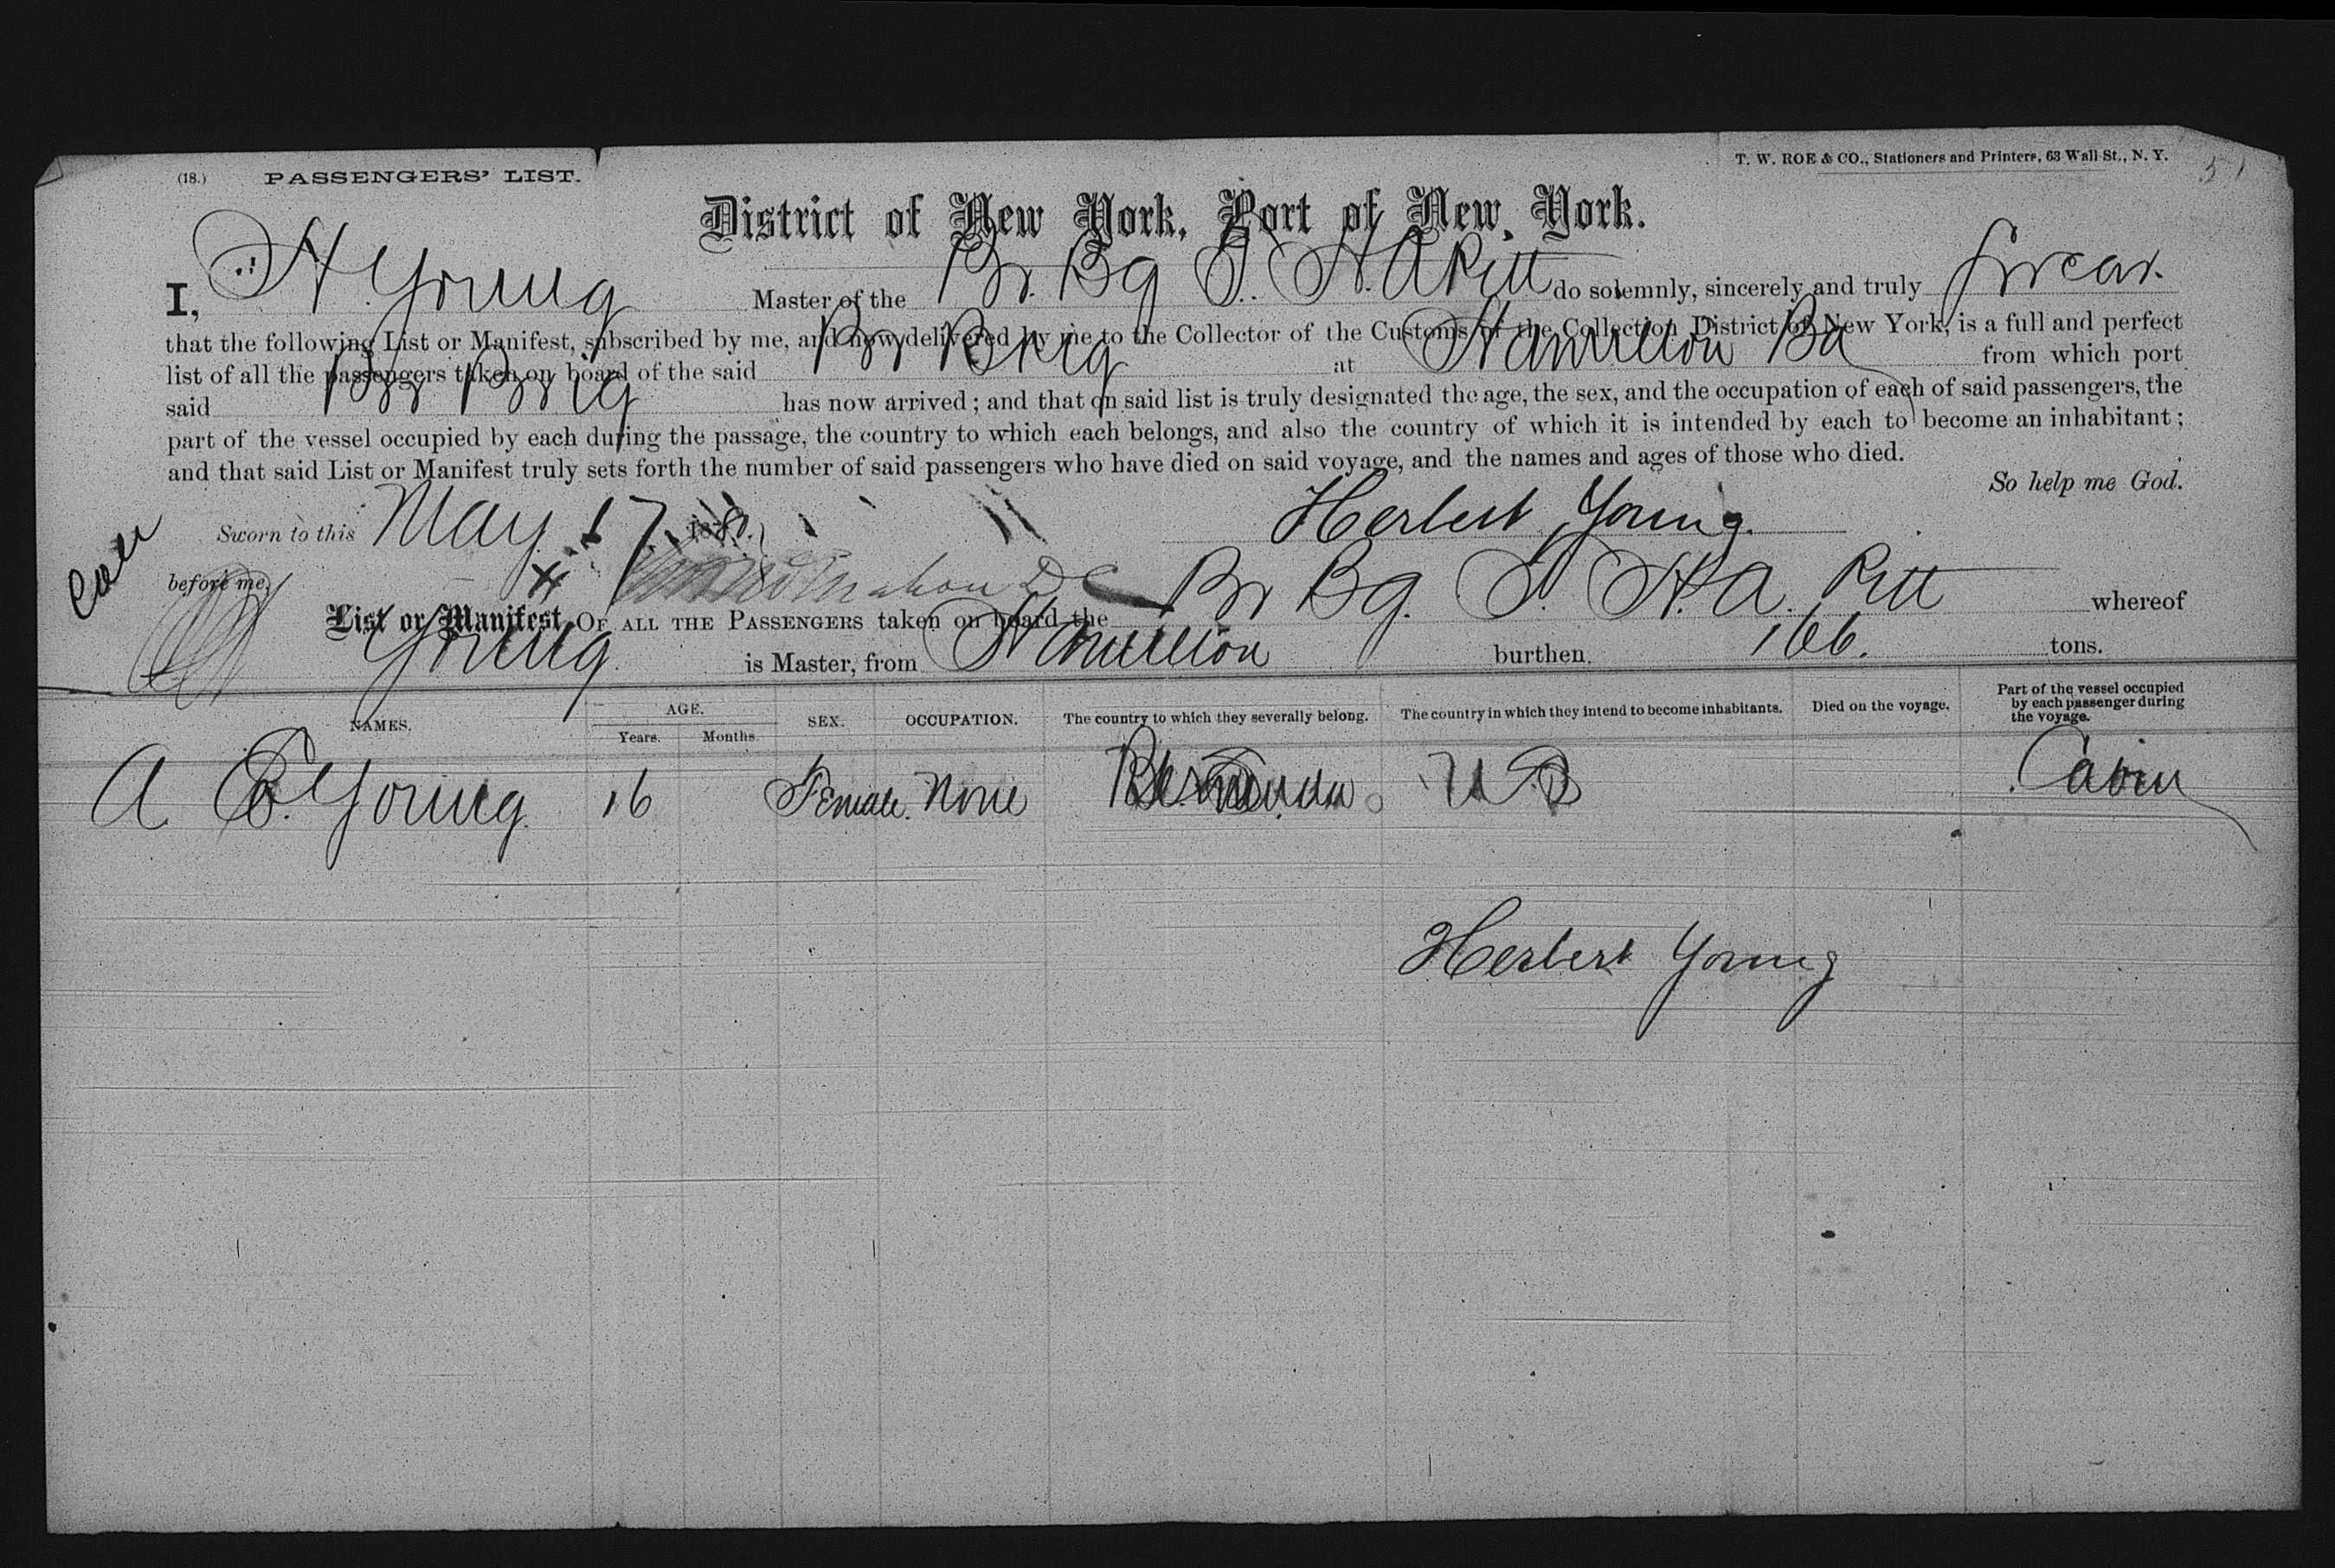 (18.) PASSENGERS' LIST.
T. W. ROE & CO., Stationers and Printers, 63 Wall St., N. Y.
District of New York, Port of New York.
I, H Young Master of the Br. Bg T. H. A Pitt do solemnly, sincerely and truly swear.
that the following List or Manifest, subscribed by me, and now delivered by me to the Collector of the Customs of the Collection District of New York, is a full and perfect
list of all the passengers taken on board of the said Br Brig at Hamilton Ba from which port
said Br Brig has now arrived; and that on said list is truly designated the age, the sex, and the occupation of each of said passengers, the
part of the vessel occupied by each during the passage, the country to which each belongs, and also the country of which it is intended by each to become an inhabitant;
and that said List or Manifest truly sets forth the number of said passengers who have died on said voyage, and the names and ages of those who died.
So help me God.
Sworn to this May 17 188 Herbert Young
before me,
List or Manifest, OF ALL THE PASSENGERS taken on board the Br Bg. T. H. A. Pitt whereof
Young is Master, from Hamilton burthen 166. tons.
NAMES. AGE. Years. Months. SEX. OCCUPATION. The country to which they severally belong. The country in which they intend to become inhabitants. Died on the voyage. Part of the vessel occupied by each passenger during the voyage.
A Young 16 Female. None Bermuda U S Cabin
Herbert Young